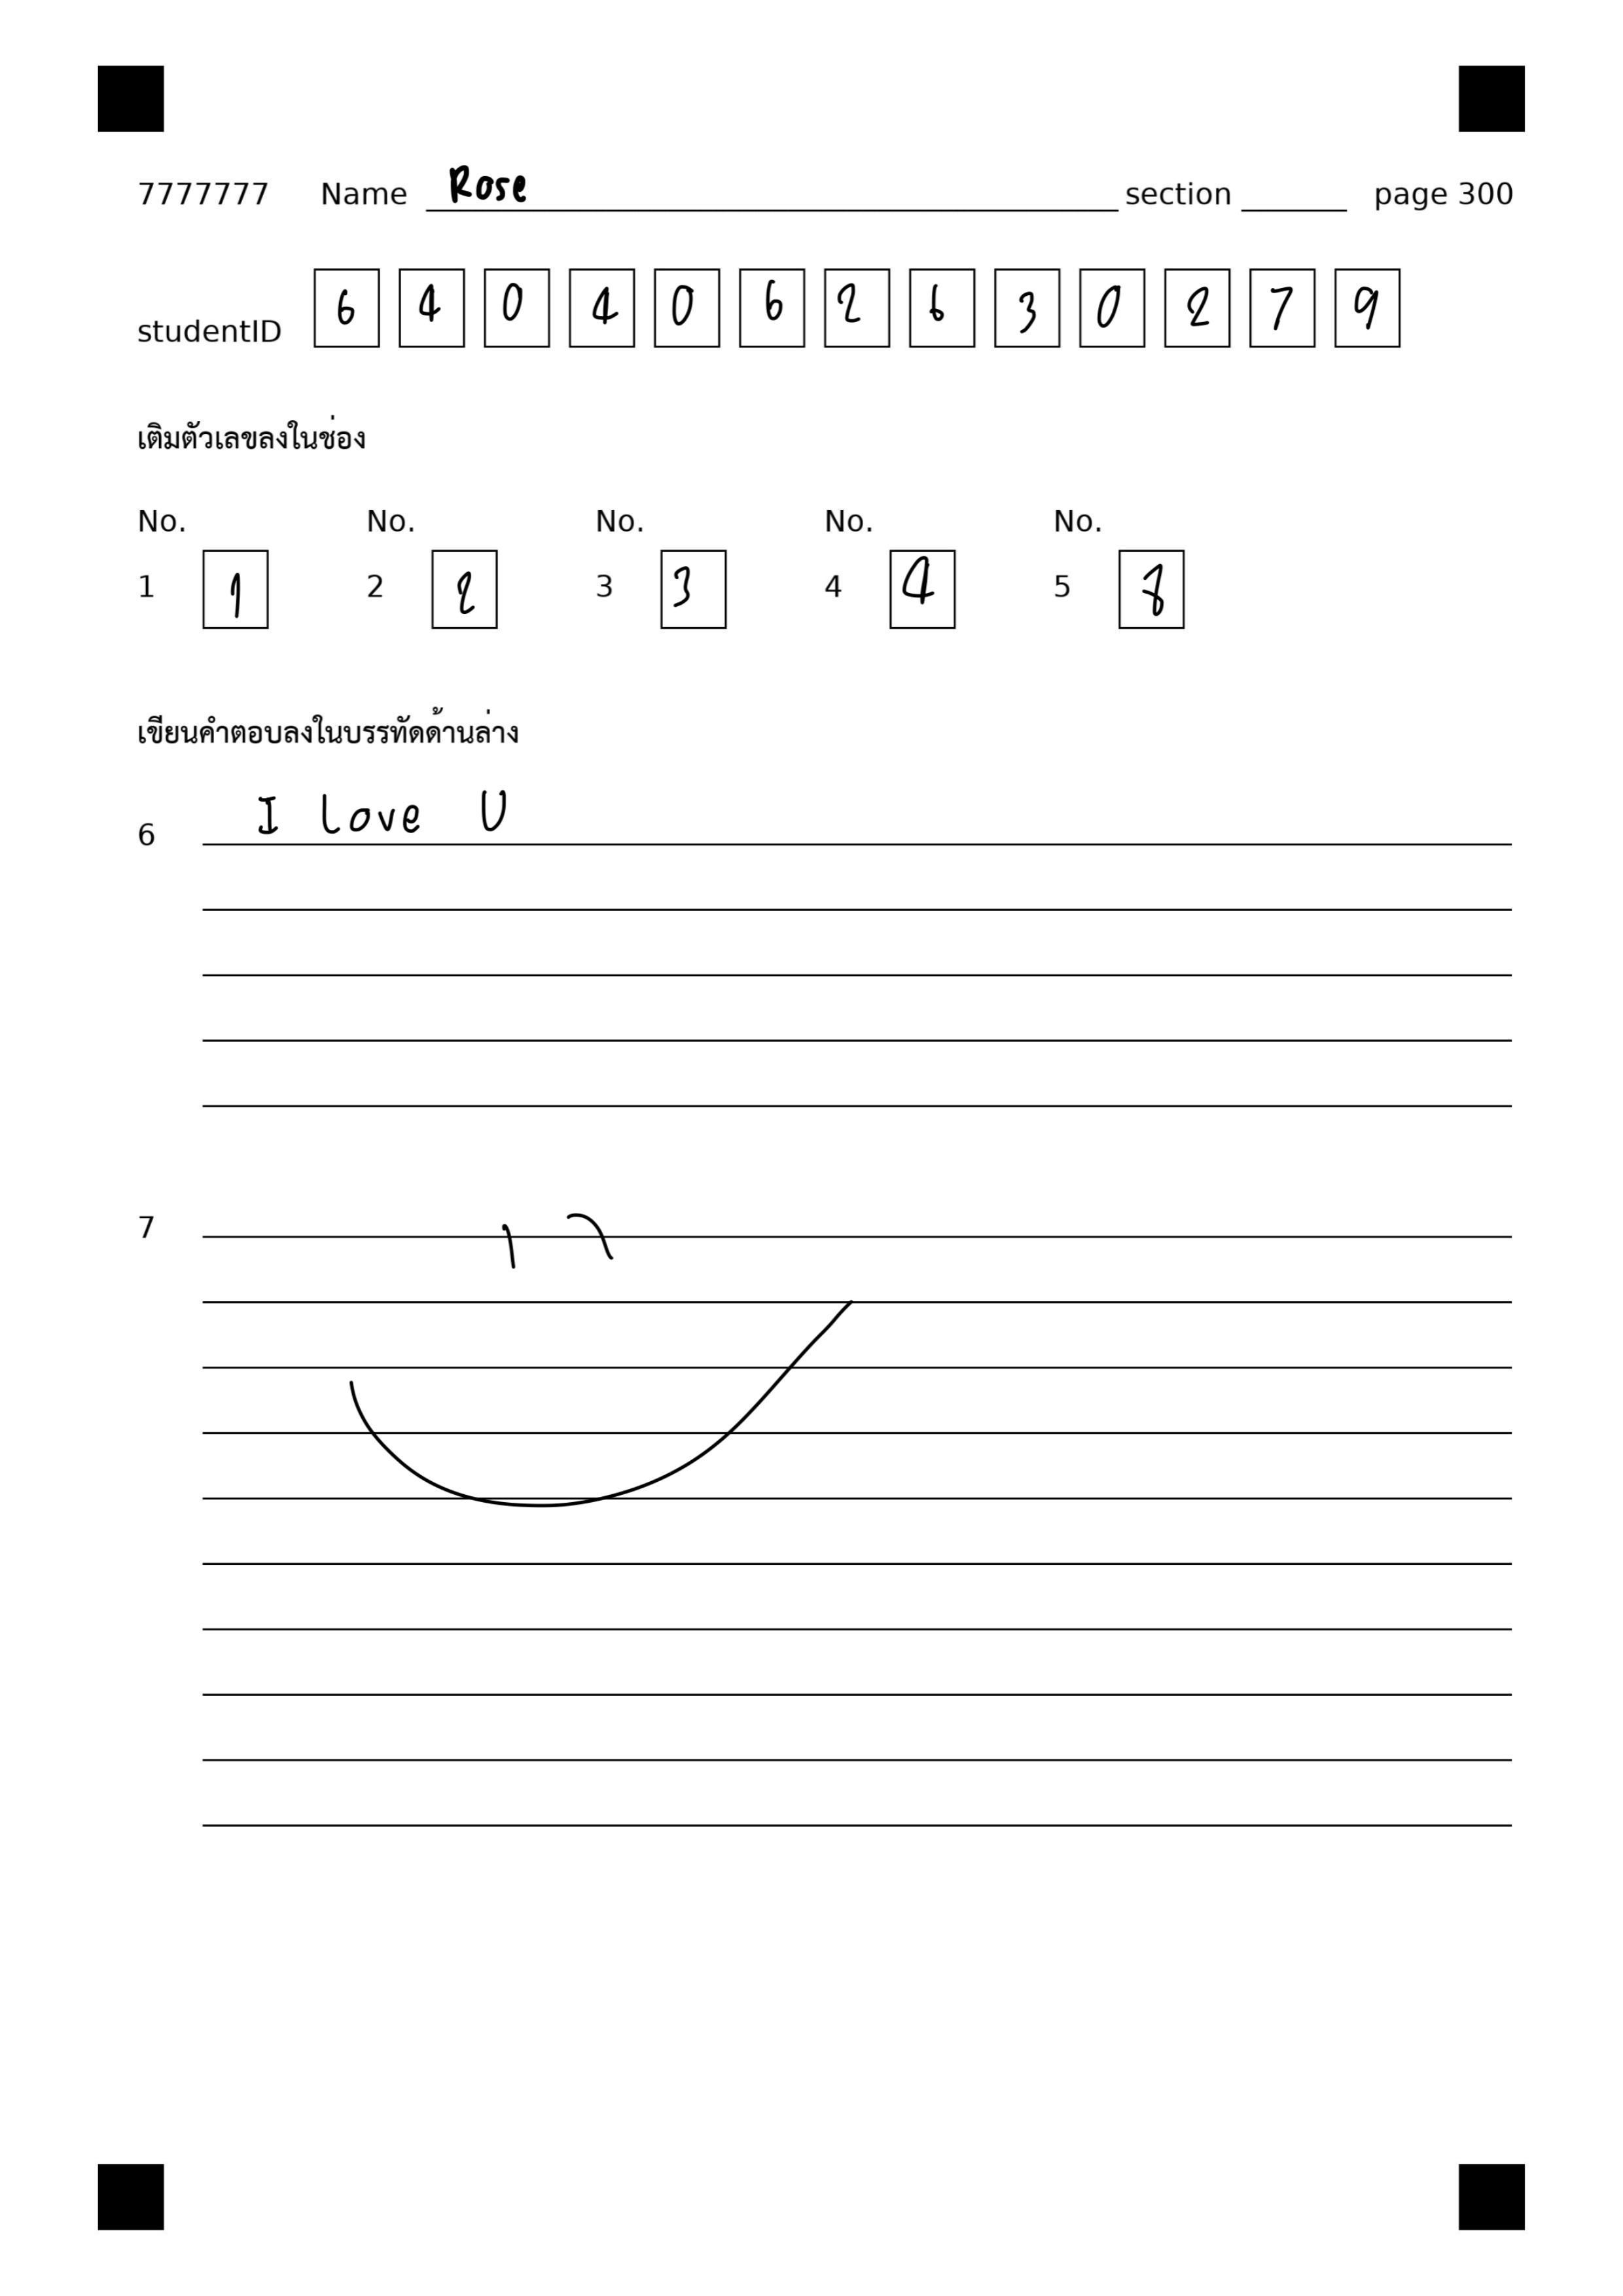 7777777 Name Rose section page 300
studentID 6 4 0 4 0 6 2 6 3 0 2 7 9
เติมตัวเลขลงในช่อง
No. No. No. No. No.
1 1 2 2 3 3 4 4 5 8
เขียนคำตอบลงในบรรทัดด้านล่าง
6 I love U
7